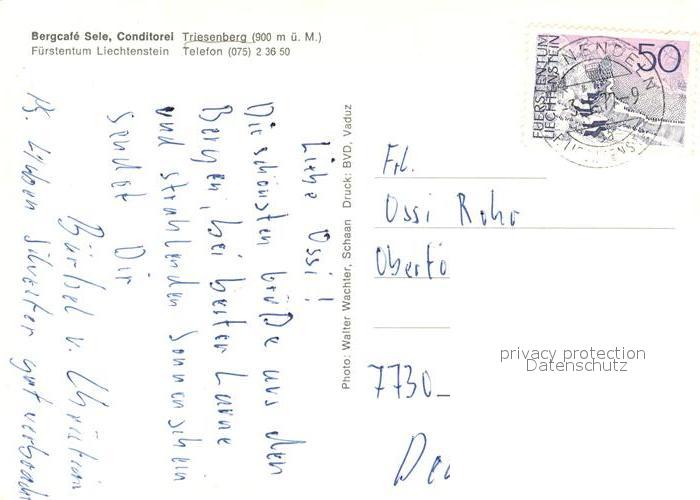 Bergcafé Sele, Conditorei Triesenberg (900 m ü. M.)
Fürstentum Liechtenstein Telefon (075) 2 36 50
FUERSTENTUM
LIECHTENSTEIN
50
NENDELN
Liebe Ossi!
Die schönsten Grüße aus den
Bergen, bei bester Laune
und strahlenden Sonnenschein
sendet Dir
Bärbel u. Christian
Silvester gut verbracht
Photo: Walter Wachter, Schaan Druck: BVD, Vaduz
Frl.
Ossi Rohr
Obertö
7730
privacy protection
Datenschutz